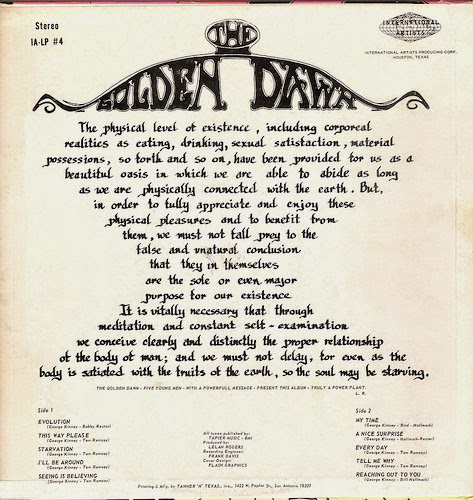 Stereo
IA-LP #4
INTERNATIONAL
ARTISTS
INTERNATIONAL ARTISTS PRODUCING CORP.
HOUSTON, TEXAS
THE
GOLDEN DAWN
The physical level of existence, including corporeal
realities as eating, drinking, sexual satisfaction, material
possessions, so forth and so on, have been provided for us as a
beautiful oasis in which we are able to abide as long
as we are physically connected with the earth. But,
in order to fully appreciate and enjoy these
physical pleasures and to benefit from
them, we must not fall prey to the
false and unatural conclusion
that they in themselves
are the sole or even major
purpose for our existence
It is vitally necessary that through
meditation and constant self-examination
we conceive clearly and distinctly the proper relationship
of the body of man; and we must not delay, for even as the
body is satiated with the fruits of the earth, so the soul may be starving.
THE GOLDEN DAWN - FIVE YOUNG MEN - WITH A POWERFULL MESSAGE - PRESENT THIS ALBUM - TRULY A POWER PLANT.
L. R.
Side 1
EVOLUTION
(George Kinney - Bobby Rector)
THIS WAY PLEASE
(George Kinney - Tom Ramsey)
STARVATION
(George Kinney - Tom Ramsey)
I'LL BE AROUND
(George Kinney - Tom Ramsey)
SEEING IS BELIEVING
(George Kinney - Tom Ramsey)
All tunes published by:
TAPIER MUSIC - BMI
Produced by:
LELAN ROGERS
Recording Engineers:
FRANK DAVIS
Cover Design:
FLASH GRAPHICS
Side 2
MY TIME
(George Kinney - Bird - Hallmark)
A NICE SURPRISE
(George Kinney - Hallmark-Rector)
EVERY DAY
(George Kinney - Tom Ramsey)
TELL ME WHY
(George Kinney - Tom Ramsey)
REACHING OUT TO YOU
(George Kinney - Bill Hallmark)
Printing & Mfg. by TANNER 'N' TEXAS, Inc., 1422 W. Poplar St., San Antonio 78207